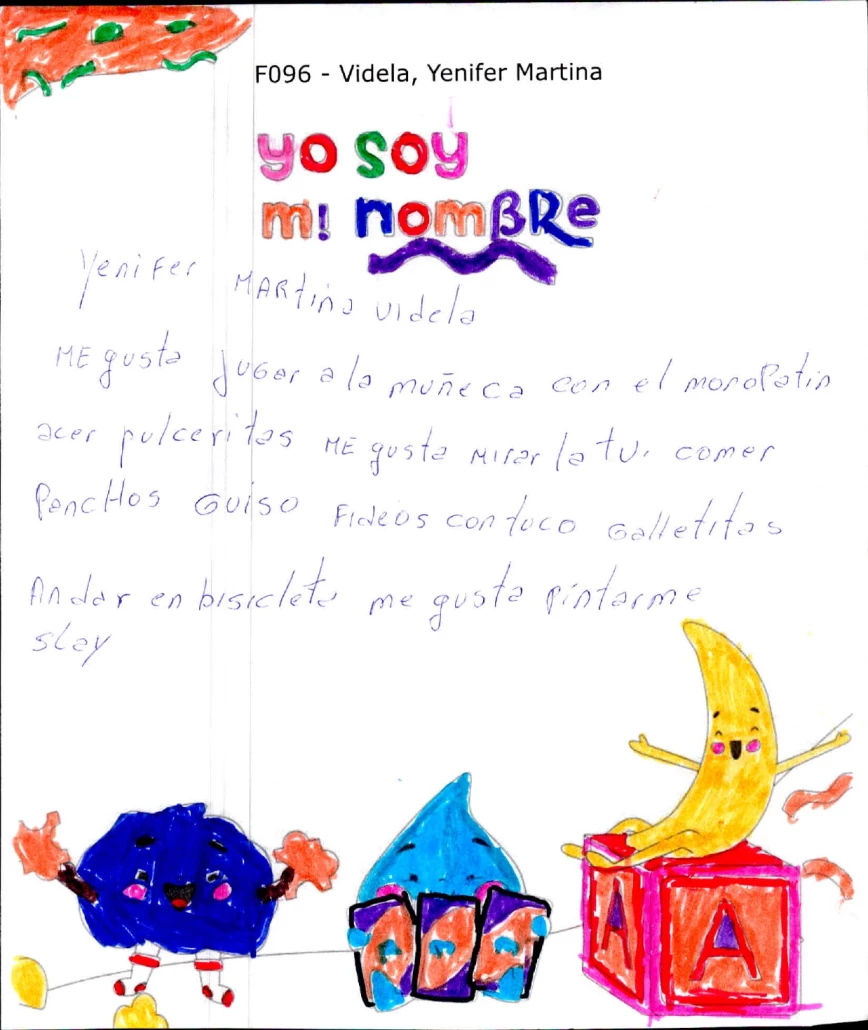 F096 - Videla, Yenifer Martina
yo soy
mi nomBRe
Yenifer MARtina Videla
ME gusta jugar a la muñeca con el monoPatin
acer pulceritas ME gusta Mirar la tv. comer
PancHos Guiso Fideos con tuco Galletitas
Andar en bisicleta me gusta pintarme
slay
A A